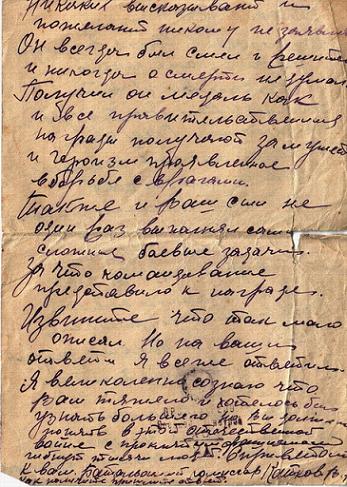 Никаких высказываний и
пожеланий никому не заявлял
Он всегда был смел и решителен
и никогда о смерти не думал.
Получил он медаль как
и все правительственные
награды получают за мужество
и героизм проявленное
в борьбе с врагами.
Также и ваш сын не
один раз выполнял самые
сложные боевые задачи.
За что командование
представило к награде.
Извините что так мало
описал. Но на ваши
ответы я всегда
Я великолепно сознаю что
вам тяжело и хотелось бы
узнать больше но Вы должны
понять в этой отечественной
войне с проклятыми
гибнут тысячи людей. С приветом
к вам. Батальонный комиссар
как получите пришлите ответ.